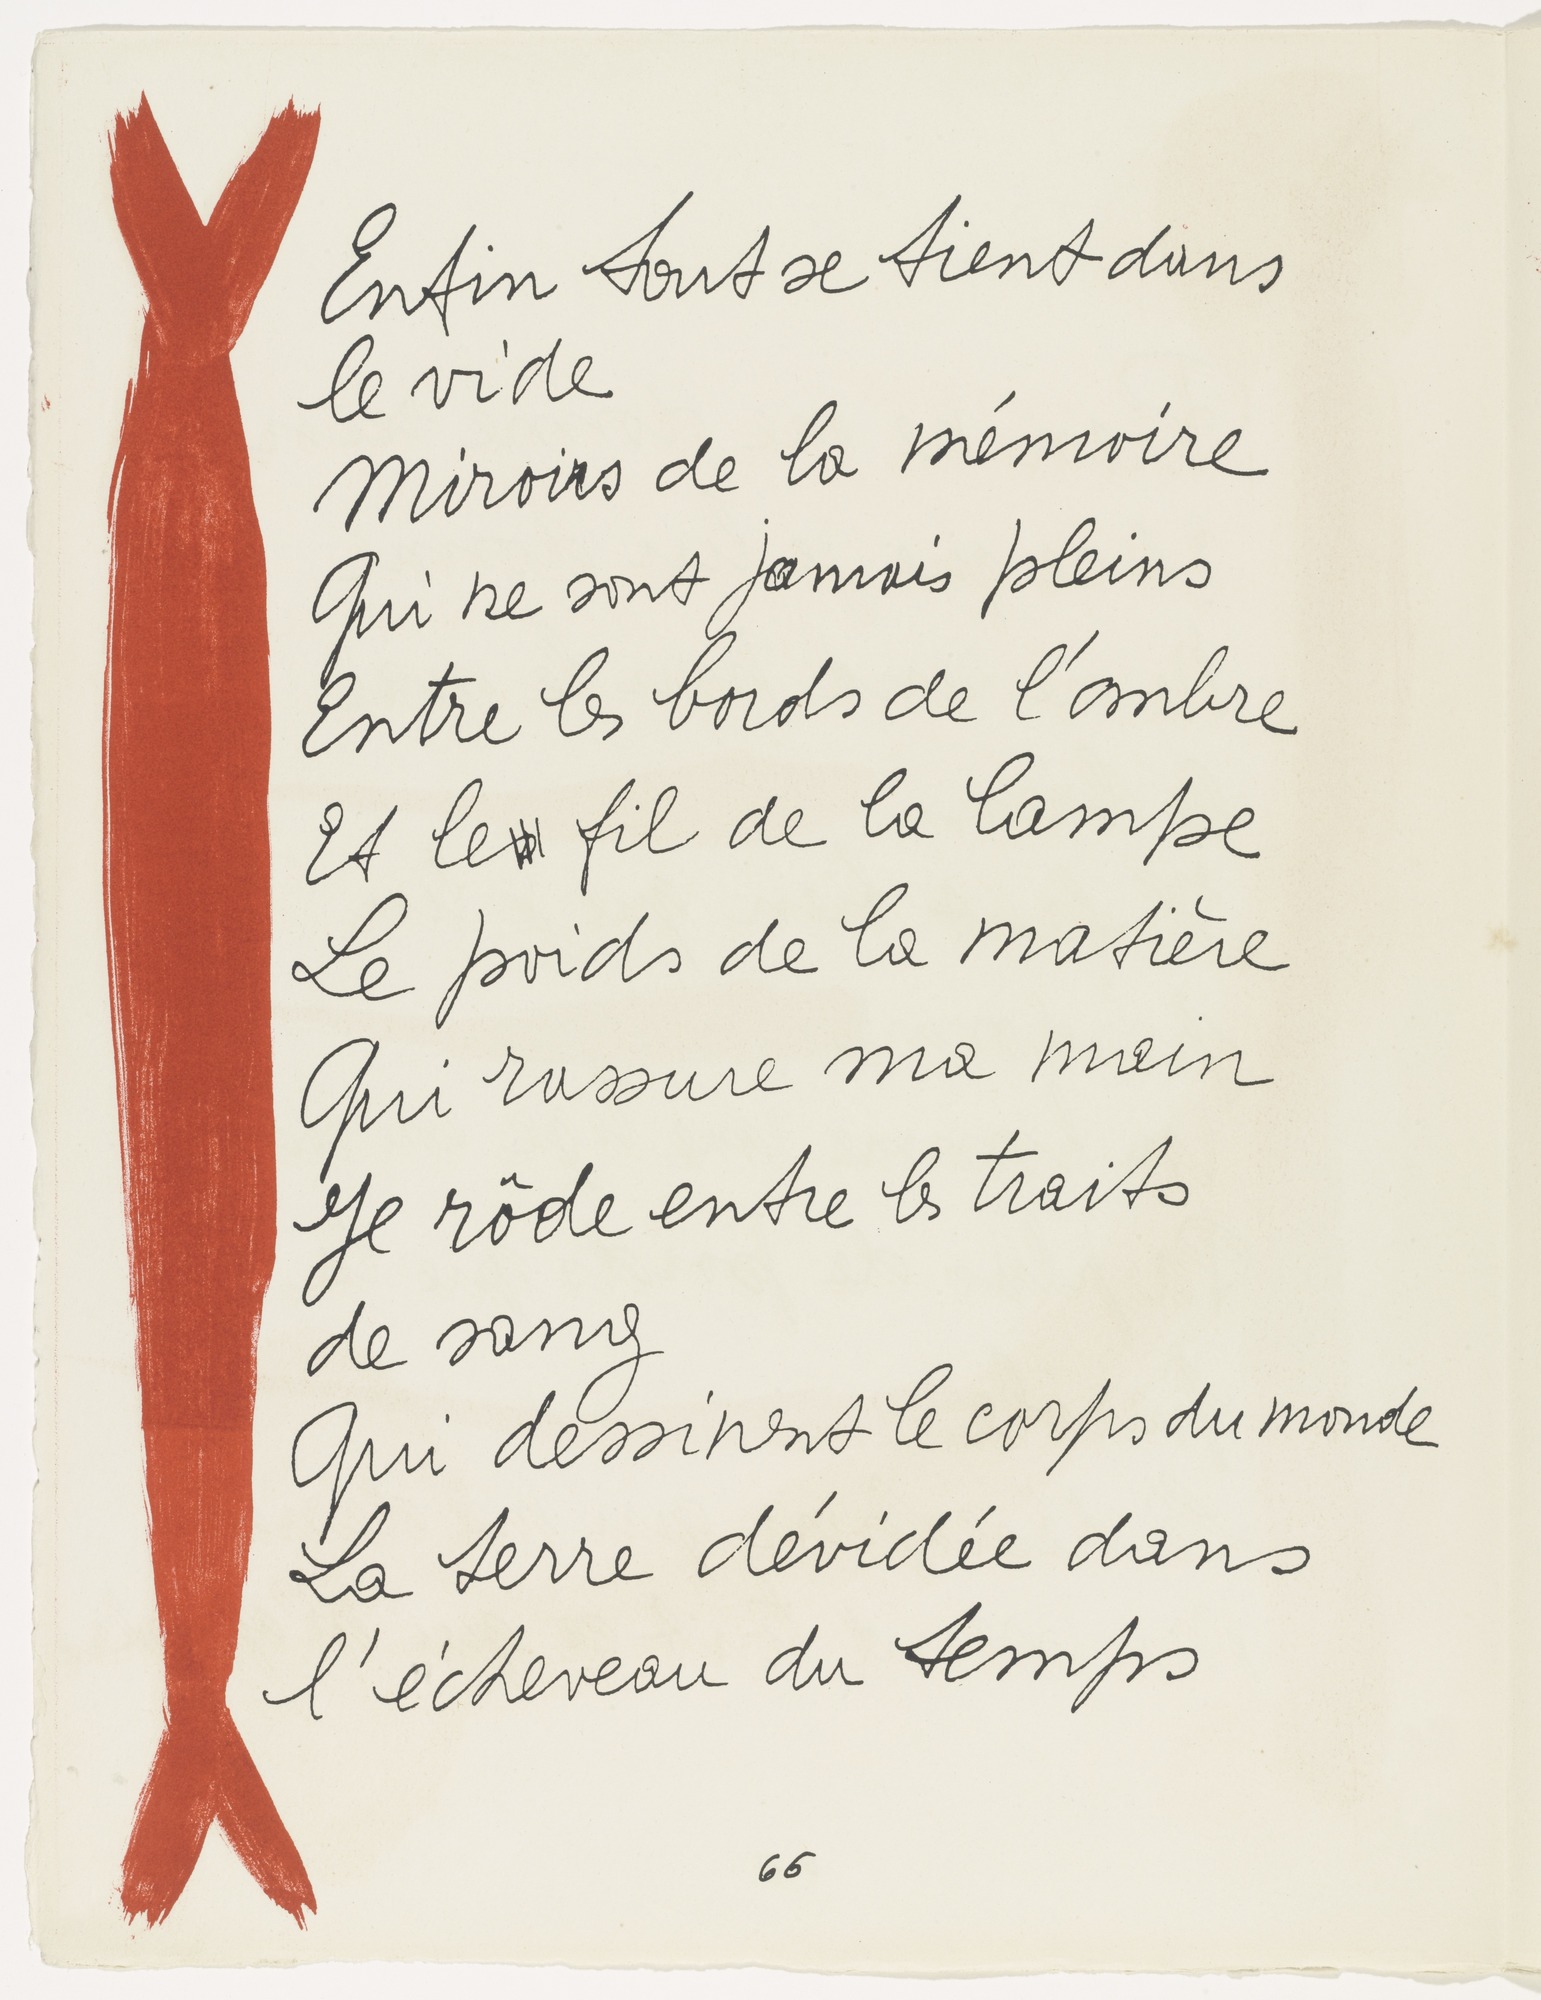 Enfin tout se tient dans
le vide
Miroirs de la mémoire
Qui ne sont jamais pleins
Entre les bords de l'ombre
Et le fil de la lampe
Le poids de la matière
Qui rassure ma main
Je rôde entre les traits
de sang
Qui dessinent le corps du monde
La terre dévidée dans
l'écheveau du temps
66